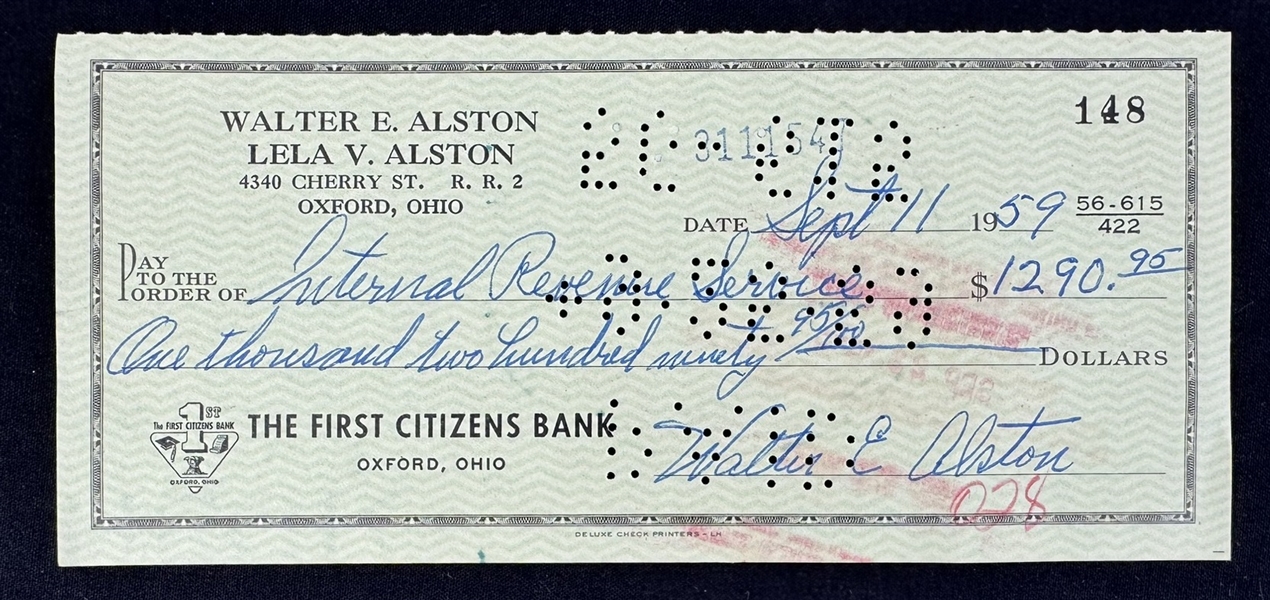 148
WALTER E. ALSTON
LELA V. ALSTON
4340 CHERRY ST. R. R. 2
OXFORD, OHIO
DATE Sept 11 1959
56-615
422
PAY TO THE ORDER OF Internal Revenue Service $1290.95
One thousand two hundred ninety 95/100 DOLLARS
1ST
THE FIRST CITIZENS BANK
OXFORD, OHIO
THE FIRST CITIZENS BANK
OXFORD, OHIO
Walter E Alston
028
DELUXE CHECK PRINTERS - LH